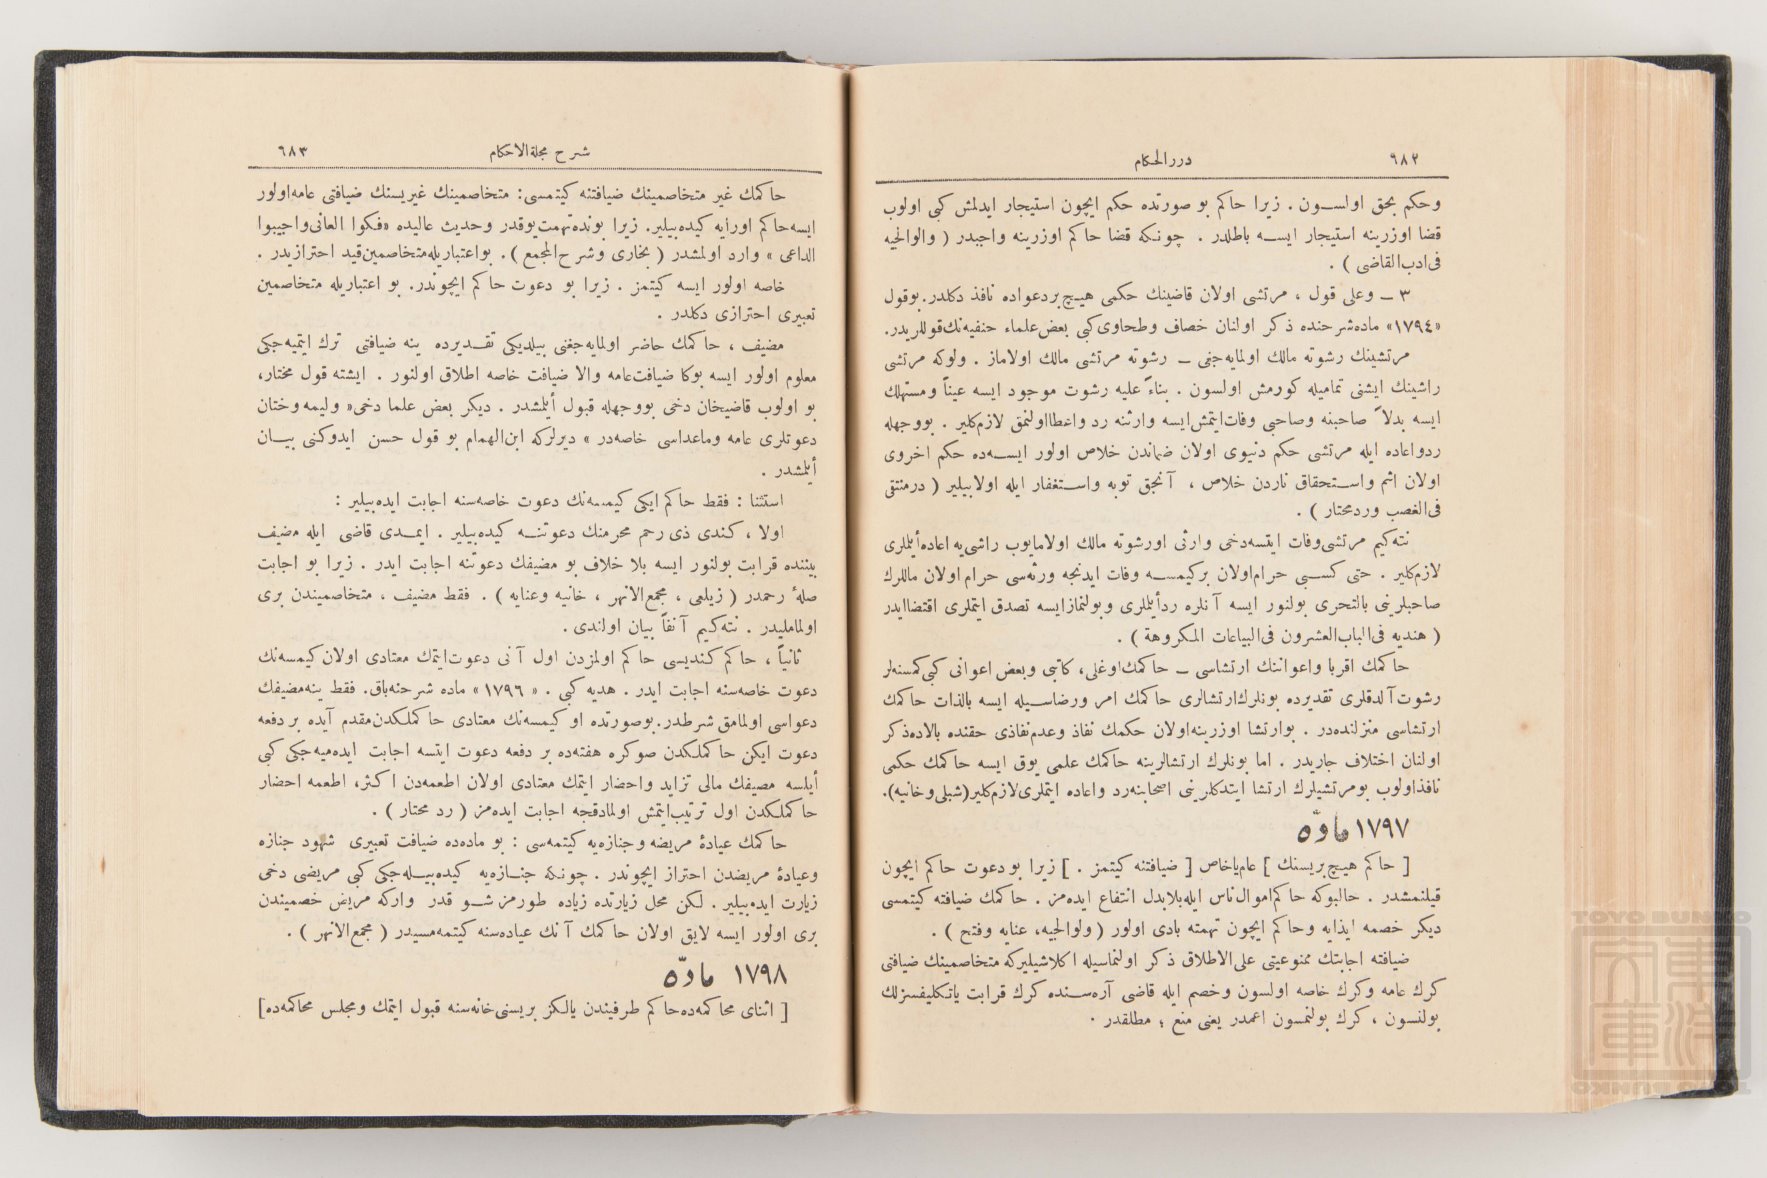 ٦٨٢
دررالحكام
وحكم بحق اولسون . زيرا حاكم بو صورتده حكم ايچون استيجار ايدلمش كبى اولوب
قضا اوزرينه استيجار ايسه باطلدر . چونكه قضا حاكم اوزرينه واجبدر ( والوالجيه
فى ادب القاضى ) .
٣ ــ وعلى قول ، مرتشى اولان قاضينك حكمى هيچ بر دعواده نافذ دكلدر. بو قول
«١٧٩٤» ماده شرحنده ذكر اولنان خصاف وطحاوى كبى بعض علماء حنفيه نك قوللريدر.
مرتشينك رشوته مالك اولمايه جغى ــ رشوته مرتشى مالك اولاماز . ولوكه مرتشى
راشينك ايشنى تماميله كورمش اولسون . بناءً عليه رشوت موجود ايسه عيناً ومستهلك
ايسه بدلاً صاحبنه وصاحبى وفات ايتمش ايسه وارثنه رد واعطا اولنمق لازم كلير . بو وجهله
رد واعاده ايله مرتشى حكم دنيوى اولان ضماندن خلاص اولور ايسه ده حكم اخروى
اولان اثم واستحقاق ناردن خلاص ، آنجق توبه واستغفار ايله اولابيلير ( درمنتقى
فى الغصب وردمحتار ) .
نته كيم مرتشى وفات ايتسه دخى وارثى او رشوته مالك اولامايوب راشى يه اعاده ايلملرى
لازم كلير . حتى كسبى حرام اولان بر كيمسه وفات ايدنجه ورثه سى حرام اولان ماللرك
صاحبلرينى بالتحرى بولنور ايسه آنلره رد ايلملرى وبولنماز ايسه تصدق ايتملرى اقتضا ايدر
( هنديه فى الباب العشرون فى البياعات المكروهة ) .
حاكمك اقربا واعواننك ارتشاسى ــ حاكمك اوغلى، كاتبى وبعض اعوانى كبى كمسنه لر
رشوت آلدقلرى تقديرده بونلرك ارتشالرى حاكمك امر ورضاسيله ايسه بالذات حاكمك
ارتشاسى منزلنده در . بو ارتشا اوزرينه اولان حكمك نفاذ وعدم نفاذى حقنده بالاده ذكر
اولنان اختلاف جاريدر . اما بونلرك ارتشالرينه حاكمك علمى يوق ايسه حاكمك حكمى
نافذ اولوب بو مرتشيلرك ارتشا ايتدكلرينى اصحابنه رد واعاده ايتملرى لازم كلير (شبلى وخانيه).
١٧٩٧ مادّه
[ حاكم هيچ بريسنك ] عام ياخاص [ ضيافتنه كيتمز . ] زيرا بو دعوت حاكم ايچون
قيلنمشدر . حالبوكه حاكم اموال ناس ايله بلابدل انتفاع ايده مز . حاكمك ضيافته كيتمسى
ديكر خصمه ايذايه وحاكم ايچون تهمته بادى اولور ( ولوالجيه، عنايه وفتح ) .
ضيافته اجابتك ممنوعيتى على الاطلاق ذكر اولنماسيله اكلاشيليركه متخاصمينك ضيافتى
كرك عامه وكرك خاصه اولسون وخصم ايله قاضى آره سنده كرك قرابت ياتكليفسزلك
بولنسون ، كرك بولنمسون اعمدر يعنى منع ؛ مطلقدر .
شرح مجلة الاحكام
٦٨٣
حاكمك غير متخاصمينك ضيافتنه كيتمسى : متخاصمينك غيريسنك ضيافتى عامه اولور
ايسه حاكم اورايه كيده بيلير. زيرا بونده تهمت يوقدر وحديث عاليده «فكوا العانى واجيبوا
الداعى » وارد اولمشدر ( بخارى وشرح المجمع ) . بو اعتبار يله متخاصمين قيد احترازيدر .
خاصه اولور ايسه كيتمز . زيرا بو دعوت حاكم ايچوندر. بو اعتباريله متخاصمين
تعبيرى احترازى دكلدر .
مضيف ، حاكمك حاضر اولمايه جغنى بيلديكى تقديرده ينه ضيافتى ترك ايتميه جكى
معلوم اولور ايسه بوكا ضيافت عامه والا ضيافت خاصه اطلاق اولنور . ايشته قول مختار،
بو اولوب قاضيخان دخى بو وجهله قبول أيلمشدر . ديكر بعض علما دخى « وليمه وختان
دعوتلرى عامه وماعداسى خاصه در » ديرلركه ابن الهمام بو قول حسن ايدوكنى بيان
أيلمشدر .
استثنا : فقط حاكم ايكى كيمسه نك دعوت خاصه سنه اجابت ايده بيلير :
اولا ، كندى ذى رحم محرمنك دعوتنه كيده بيلير . ايمدى قاضى ايله مضيف
بيننده قرابت بولنور ايسه بلا خلاف بو مضيفك دعوتنه اجابت ايدر . زيرا بو اجابت
صلهٔ رحمدر ( زيلعى ، مجمع الانهر ، خانيه وعنايه ) . فقط مضيف ، متخاصميندن برى
اولمامليدر . نته كيم آنفاً بيان اولندى .
ثانياً ، حاكم كنديسى حاكم اولمزدن اول آنى دعوت ايتمك معتادى اولان كيمسه نك
دعوت خاصه سنه اجابت ايدر . هديه كبى . « ١٧٩٦ » ماده شرحنه باق. فقط ينه مضيفك
دعواسى اولمامق شرطدر. بو صورتده او كيمسه نك معتادى حاكملكدن مقدم آيده بر دفعه
دعوت ايكن حاكملكدن صوكره هفته ده بر دفعه دعوت ايتسه اجابت ايده ميه جكى كبى
أيلسه مضيفك مالى تزايد واحضار ايتمك معتادى اولان اطعمه دن اكثر، اطعمه احضار
حاكملكدن اول ترتيب ايتمش اولمادقجه اجابت ايده مز ( رد محتار ) .
حاكمك عيادهٔ مريضه وجنازه يه كيتمه سى : بو ماده ده ضيافت تعبيرى شهود جنازه
وعيادهٔ مريضدن احتراز ايچوندر . چونكه جنازه يه كيده بيله جكى كبى مريضى دخى
زيارت ايده بيلير . لكن محل زيارتده زياده طورمز شو قدر واركه مريض خصميندن
برى اولور ايسه لايق اولان حاكمك آنك عياده سنه كيتمه مسيدر ( مجمع الانهر ) .
١٧٩٨ مادّه
[ اثناى محاكمه ده حاكم طرفيندن يالكز بريسنى خانه سنه قبول ايتمك ومجلس محاكمه ده]
TOYO BUNKO
東洋文庫
TOYO BUNKO